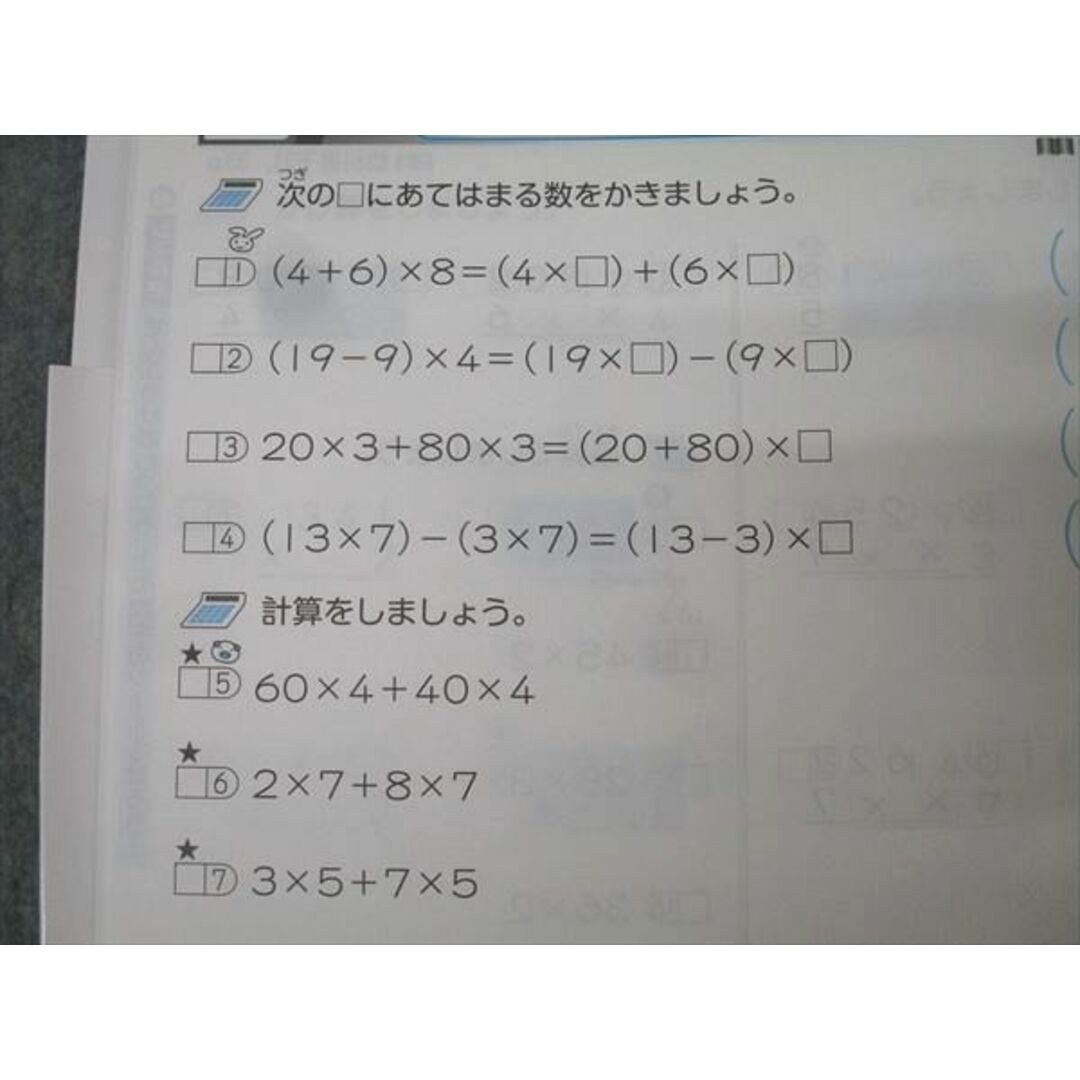 つぎ
次の□にあてはまる数をかきましょう。
□① (4+6)×8=(4×□)+(6×□)
□② (19-9)×4=(19×□)-(9×□)
□③ 20×3+80×3=(20+80)×□
□④ (13×7)-(3×7)=(13-3)×□
計算をしましょう。
★
□⑤ 60×4+40×4
★
□⑥ 2×7+8×7
★
□⑦ 3×5+7×5